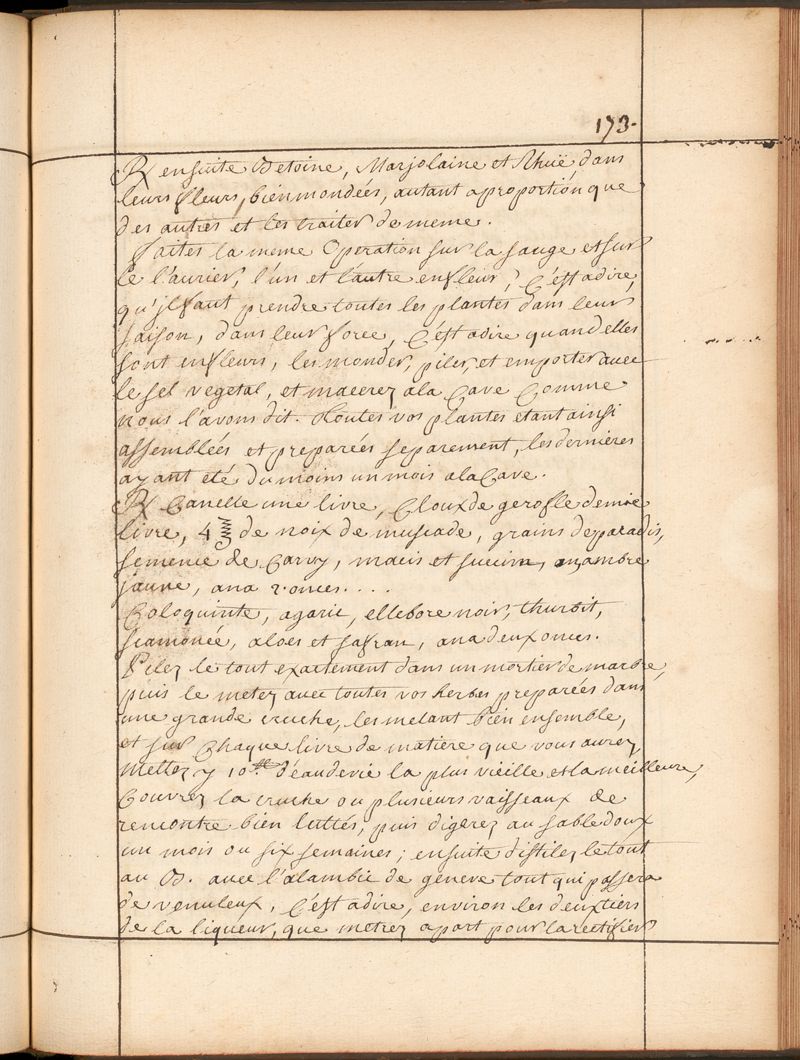 173.
℞ ensuite Betoine, Marjolaine et Rhuë dans
leurs fleurs, bien mondeés, autant a proportion que
des autres et les traiter de meme.
Faites la meme Operation sur la sauge et sur
le l'aurier, l'un et l'autre en fleur; C'est adire,
qu'jl faut prendre toutes les plantes dans leur
saison, dans leur force, C'est adire quand elles
sont en fleurs, les monder, piler, et emporter avec
le sel vegetal, et macerez a la Cave Comme
nous l'avons dit. Toutes vos plantes etant ainsi
assembleés et prepareés separement, les dernieres
ayant eté du moins un mois a la Cave.
℞ Canelle une livre, Cloux de gerofle demie
livre, 4 de noix de muscade, grains de paradis,
semence de Carvy, macis et succin, ambre
jaune, ana 2. onces. . . .
Coloquinte, agaric, ellebore noir, thurbit,
scamoneé, aloes et safran, ana deux onces.
Pilez le tout exactement dans un mortier de marbre,
puis le metez avec toutes vos herbes prepareés dans
une grande cruche, les melant bien ensemble,
et sur Chaque livre de matiere que vous aurez,
Mettez y 10.lt d'eau de vie la plus vieille et la meilleure,
Couvrez la cruche ou plusieurs vaisseaux de
rencontre bien luttés, puis digerez au sable doux
un mois ou six semaines; ensuite distilez le tout
au B. avec l'alambic de geneve tout qui passera
de venuleux, C'est adire, environ les deux tiers
de la liqueur, que metrez apart pour la rectifier